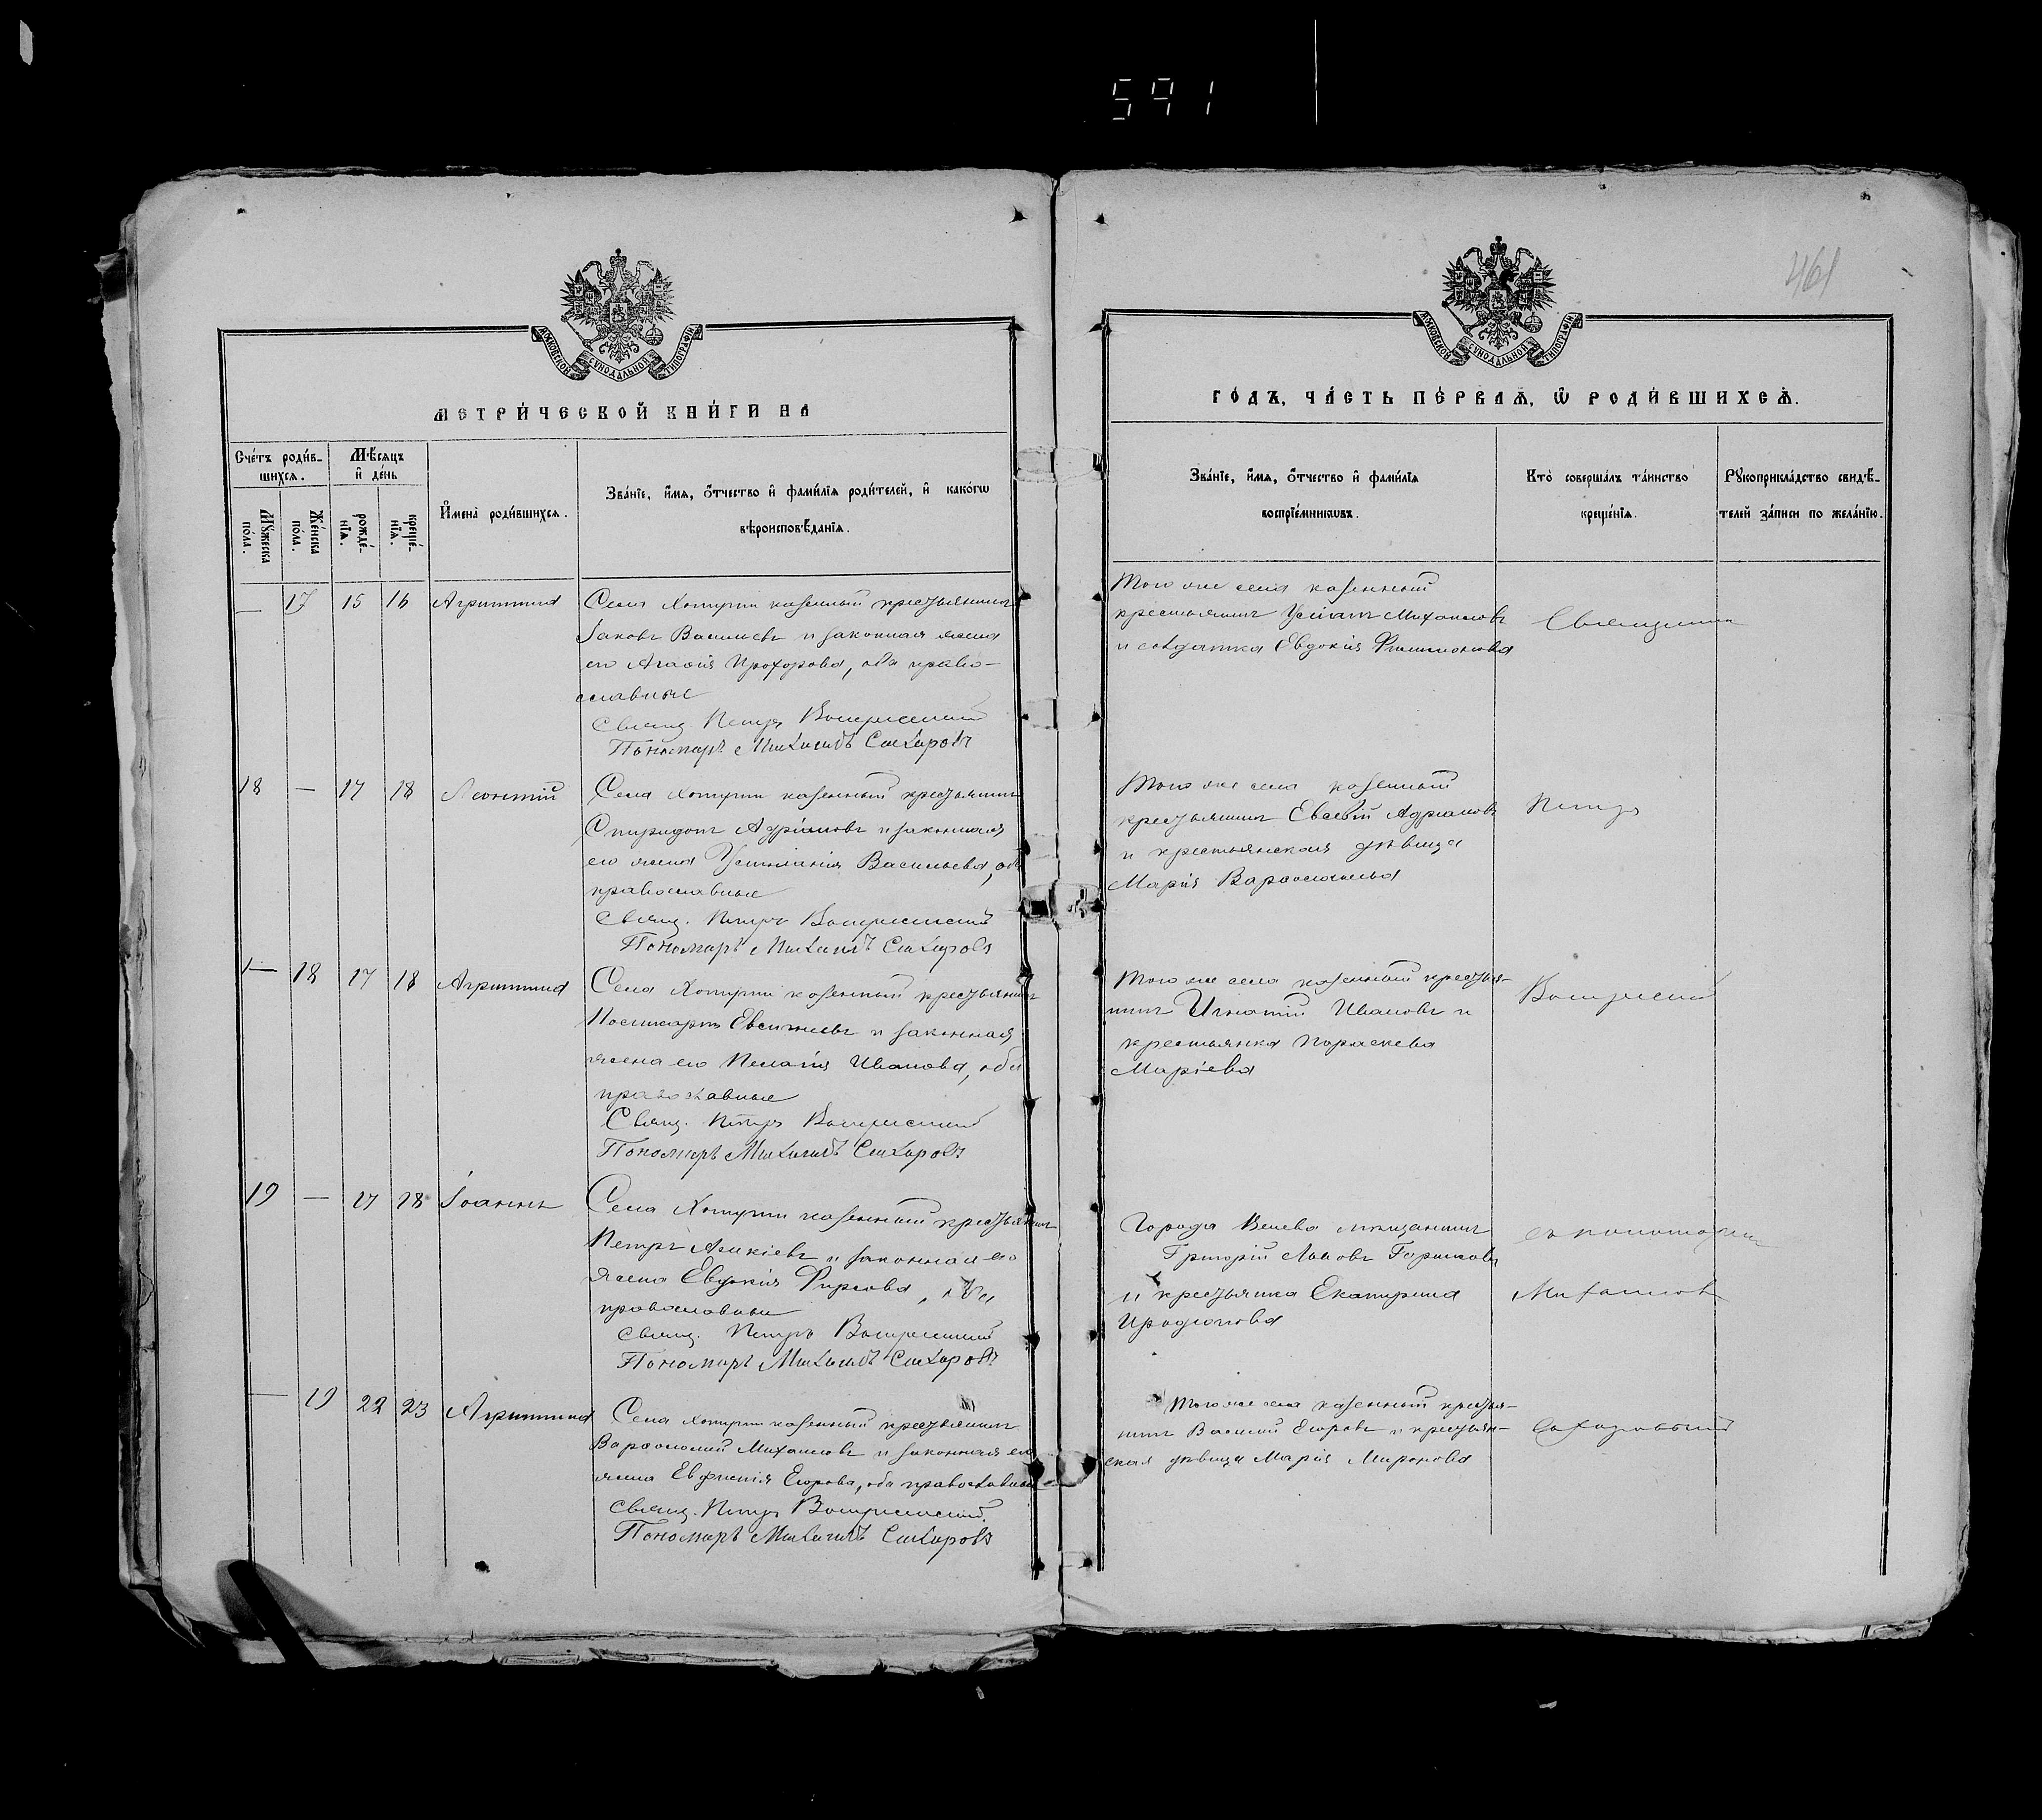 591
461
МОСКОВСКОЙ СѴНОДАЛЬНОЙ ТИПОГРАФІИ
МЕТРИ́ЧЕСКОЙ КНИ́ГИ НА
Сче́тъ роди́в-
шихсѧ.
Мѣ́сѧцъ
и҆ де́нь
Мꙋ́жеска
по́ла.
Же́нска
по́ла.
рожде́-
нїѧ.
креще́-
нїѧ.
И҆мена̀ роди́вшихсѧ.
Зва́нїе, и҆́мѧ, ѻ҆́тчество и҆ фами́лїѧ роди́телей, и҆ како́гѡ
вѣроисповѣ́данїѧ.
— 17 15 16 Агриппина
Села Хотуши казенный крестьянинъ
Іаковъ Васильевъ и законная жена
его Агафія Прохорова, оба право-
славные
Священ. Петръ Воскресенский
Пономарь Михаилъ Сахаровъ
18 — 17 18 Леонтій
Села Хотуши казенный крестьянинъ
Спиридонъ Адріановъ и законная
его жена Устинія Васильева, оба
православные
Свящ. Петръ Воскресенский
Пономарь Михаилъ Сахаровъ
— 18 17 18 Агриппина
Села Хотуши казенный крестьянинъ
Евсигніевъ и законная
жена его Пелагія Иванова, оба
православные
Свящ. Петръ Воскресенский
Пономарь Михаилъ Сахаровъ
19 — 17 18 Іоаннъ
Села Хотуши казенный крестьянинъ
Петръ и законная его
жена Евдокія Фирсова, оба
православные
Свящ. Петръ Воскресенский
Пономарь Михаилъ Сахаровъ
— 19 22 23 Агриппина
Села Хотуши казенный крестьянинъ
Варфоломей Михаиловъ и законная его
жена Евфимія Егорова, оба православные
Свящ. Петръ Воскресенский
Пономарь Михаилъ Сахаровъ
МОСКОВСКОЙ СѴНОДАЛЬНОЙ ТИПОГРАФІИ
ГО́ДЪ, ЧА́СТЬ ПЕ́РВАѦ, Ѽ РОДИ́ВШИХСѦ.
Зва́нїе, и҆́мѧ, ѻ҆́тчество и҆ фами́лїѧ
воспрїе́мникѡвъ.
Кто̀ соверша́лъ та́инство
креще́нїѧ.
Рꙋкоприкла́дство свидѣ́-
телей за́писи по жела́нїю.
Того же села казенный
крестьянинъ Михаиловъ
и солдатка Евдокія Филимонова
Священникъ
Того же села казенный
крестьянинъ Евсевій Адріановъ
и крестьянская дѣвица
Марія Варфоломеева
Петръ
Того же села казенный крестья-
нинъ Игнатій Ивановъ и
крестьянка Параскева
Маріева
Воскресенский
Города Венева мѣщанинъ
Григорій Львовъ
и крестьянка Екатерина
Иродіонова
съ пономаремъ
Михаиломъ
Того же села казенный крестья-
нинъ Василій Егоровъ и крестьян-
ская дѣвица Марія Миронова